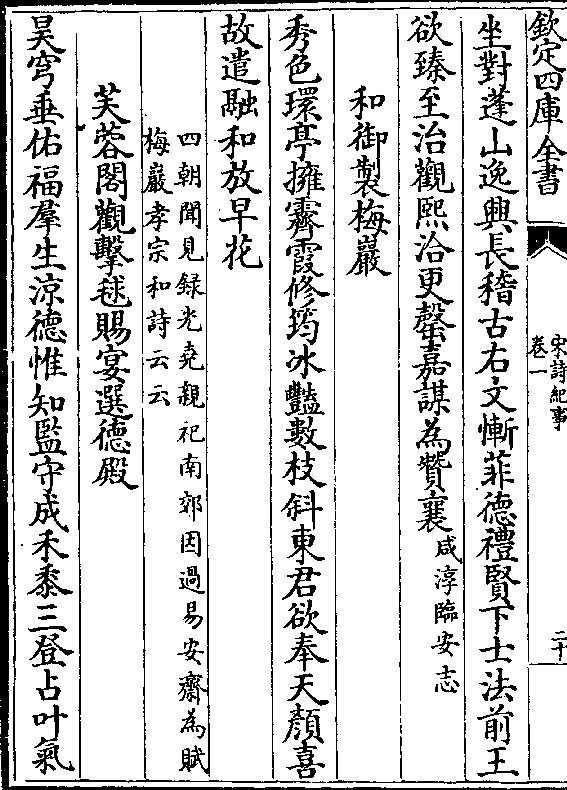 欽定四庫全書
宋詩紀事
卷一
二十
坐對蓬山逸興長稽古右文慚菲德禮賢下士法前王
欲臻至治觀熙洽更罄嘉謀為贊襄咸淳臨安志
和御製梅巖
秀色環亭擁霽霞修筠冰豔數枝斜東君欲奉天顏喜
故遣融和放早花
四朝聞見錄光堯親祀南郊因過易安齋為賦
梅巖孝宗和詩云云
芙蓉閣觀擊毬賜宴選德殿
昊穹垂佑福羣生涼德惟知監守成禾黍三登占叶氣